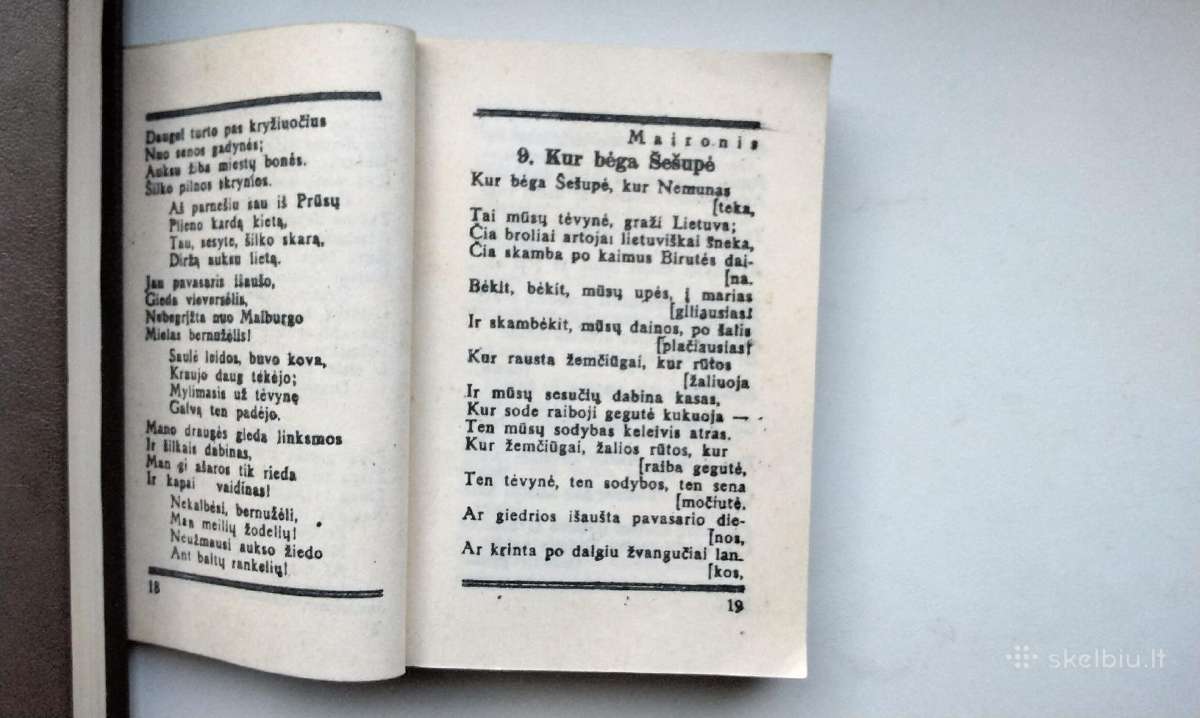 Daugel turto pas kryžiuočius
Nuo senos gadynės;
Auksu žiba miestų bonės.
Šilko pilnos skrynios.
Aš parnešiu sau iš Prūsų
Plieno kardą kietą,
Tau, sesyte, šilko skarą,
Diržą auksu lietą.
Jau pavasaris išaušo,
Gieda vieversėlis,
Nebegrįžta nuo Malburgo
Mielas bernužėlis!
Saulė leidos, buvo kova,
Kraujo daug tekėjo;
Mylimasis už tėvynę
Galvą ten padėjo.
Mano draugės gieda linksmos
Ir šilkais dabinas,
Man gi ašaros tik rieda
Ir kapai vaidinas!
Nekalbėsi, bernužėli,
Man meilių žodelių!
Neužmausi aukso žiedo
Ant baltų rankelių!
18
Maironis
9. Kur bėga Šešupė
Kur bėga Šešupė, kur Nemunas
[teka,
Tai mūsų tėvynė, graži Lietuva;
Čia broliai artojai lietuviškai šneka,
Čia skamba po kaimus Birutės dai-
[na.
Bėkit, bėkit, mūsų upės, į marias
[giliausias!
Ir skambėkit, mūsų dainos, po šalis
[plačiausias!
Kur rausta žemčiūgai, kur rūtos
[žaliuoja
Ir mūsų sesučių dabina kasas,
Kur sode raiboji gegutė kukuoja —
Ten mūsų sodybas keleivis atras.
Kur žemčiūgai, žalios rūtos, kur
[raiba gegutė,
Ten tėvynė, ten sodybos, ten sena
[močiutė.
Ar giedrios išaušta pavasario die-
[nos,
Ar krinta po dalgiu žvangučiai lan-
[kos,
19
skelbiu.lt